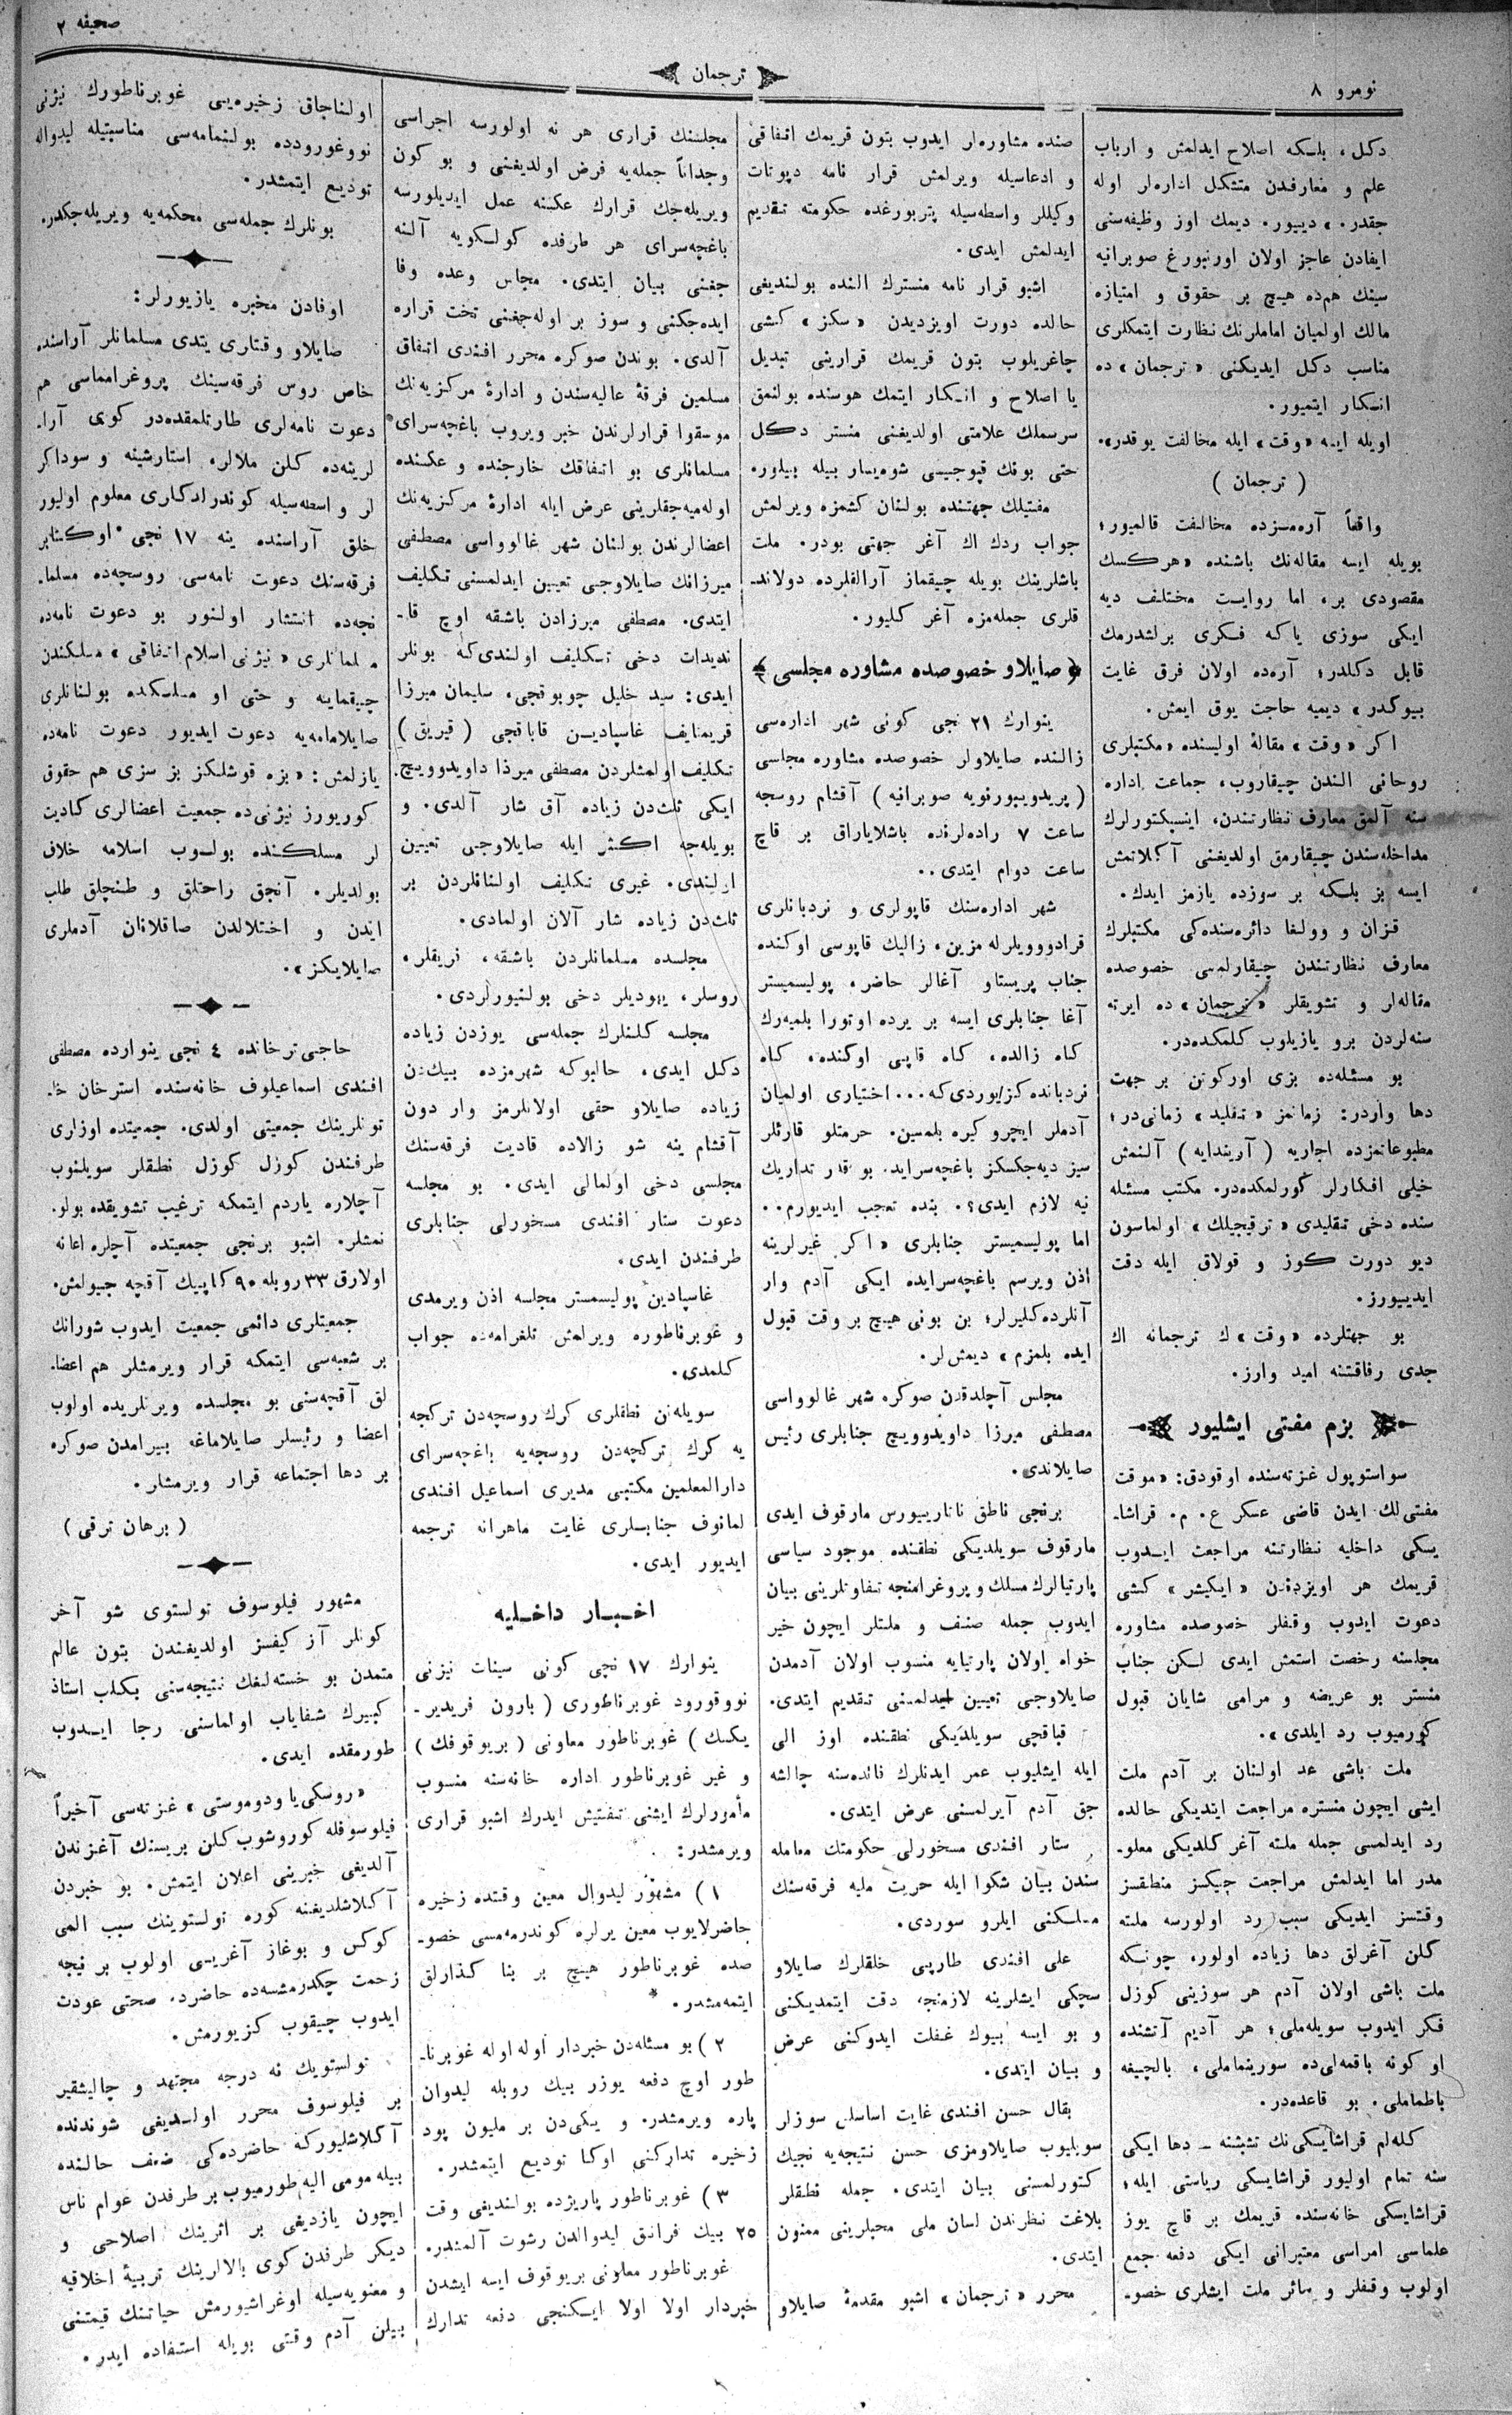 نومرو ٨
ترجمان
صحیفه ٢
دكل، بلسكه اصلاح ایدلمش و ارباب
علم و معارفدن متشكل اداره‌لر اوله
جقدر.» دیيور. دیمك اوز وظیفه‌سنی
ایفادن عاجز اولان اورنبورغ صوبرانیه
سینك هم‌ده هیچ بر حقوق و امتیازه
مالك اولمیان اماملرنك نظارت ایتمكلری
مناسب دكل ایدیكنی «ترجمان» ده
انسكار ایتمیور.
اویله ایسه «وقت» ایله مخالفت یوقدر».
( ترجمان )
واقعاً آره‌مزده مخالفت قالمیور؛
بویله ایسه مقاله‌نك باشنده «هركسك
مقصودی بر، اما روایت مختلف دیه
ایكی سوزی یاكه فكری برلشدرمك
قابل دكلدر؛ آره‌ده اولان فرق غایت
بیوكدر» دیمیه حاجت یوق ایمش.
اكر «وقت» مقالهٔ اولیسنده «مكتبلری
روحانی الندن چیقاروب، جماعت اداره
سنه آلمق معارف نظارتندن، اینسپكتورلرك
مداخله‌سندن چیقارمق اولدیغنی آكلاتمش
ایسه بز بلسكه بر سوزده یازمز ایدك.
قزان و وولغا دائره‌سنده‌كی مكتبلرك
معارف نظارتندن چیقارلمسی خصوصده
مقاله‌لر و تشویقلر «ترجمان» ده ایرته
سنه‌لردن برو یازیلوب كلمكده‌در.
بو مسئله‌ده بزی اوركوتن بر جهت
دها واردر: زمانمز «تقلید» زمانی‌در؛
مطبوعاتمزده اجاریه ( آریندایه ) آلنمش
خیلی افكارلر كورلمكده‌در. مكتب مسئله
سنده دخی تقلیدی «ترقیجیلك» اولماسون
دیو دورت كوز و قولاق ایله دقت
ایدییورز.
بو جهتلرده «وقت» ك ترجمانه اك
جدی رفاقتنه امید وارز.
بزم مفتی ایشلیور
سواستوپول غزته‌سنده اوقودق: «موقت
مفتی‌لك ایدن قاضی عسكر ع. م. قراشا-
یسكی داخلیه نظارتنه مراجعت ایدوب
قریمك هر اویزدندن «ایكیشر» كشی
دعوت ایدوب وقفلر خصوصده مشاوره
مجلسنه رخصت استمش ایدی لسكن جناب
منستر بو عریضه و مرامی شایان قبول
كورمیوب رد ایلدی».
ملت باشی عد اولنان بر آدم ملت
ایشی ایچون منستره مراجعت ایتدیكی حالده
رد ایدلمسی جمله ملته آغر كلدیكی معلو-
مدر اما ایدلمش مراجعت چیكسز منطقسز
وقتسز ایدیكی سبب رد اولورسه ملته
كلن آغرلق دها زیاده اولور، چونسكه
ملت باشی اولان آدم هر سوزینی كوزل
فكر ایدوب سویله‌ملی؛ هر آدیم آتشنده
او كونه باقمه‌لی‌ده سورینماملی، بالچیغه
باطماملی. بو قاعده‌در.
كله‌لم قراشایسكی نك تشبثنه ـ دها ایكی
سنه تمام اولیور قراشایسكی ریاستی ایله؛
قراشایسكی خانه‌سنده قریمك بر قاچ یوز
علماسی امراسی معتبرانی ایكی دفعه جمع
اولوب وقفلر و سائر ملت ایشلری خصو-
صنده مشاوره‌لر ایدوب بتون قریمك اتفاقی
و ادعاسیله ویرلمش قرار نامه دپوتات
وكیللر واسطه‌سیله پتربورغده حكومته تقدیم
ایدلمش ایدی.
اشبو قرار نامه منسترك النده بولندیغی
حالده دورت اویزدیدن «سكز» كشی
چاغریلوب بتون قریمك قرارینی تبدیل
یا اصلاح و انسكار ایتمك هوسنده بولنمق
سرسملك علامتی اولدیغنی منستر دكل
حتی بونك قپوجیسی شوه‌یسار بیله بیلور.
مفتیلك جهتنده بولنان كشمزه ویرلمش
جواب ردك اك آغر جهتی بودر. ملت
باشلرینك بویله چیقماز آرالقلرده دولاند-
قلری جمله‌مزه آغر كلیور.
﴿ صایلاو خصوصده مشاوره مجلسی ﴾
ینوارك ٢١ نجی كونی شهر اداره‌سی
زالنده صایلاولر خصوصده مشاوره مجلسی
( پریدویبورنویه صوبرانیه ) آقشام روسجه
ساعت ٧ راده‌لرنده باشلایاراق بر قاچ
ساعت دوام ایتدی..
شهر اداره‌سنك قاپولری و نردبانلری
قرادوویلرله مزین، زالیك قاپوسی اوكنده
جناب پریستاو آغالر حاضر، پولیسمیستر
آغا جنابلری ایسه بر یرده اوتورا بلمیه‌رك
كاه زالده، كاه قاپی اوكنده، كاه
نردبانده كزیوردی‌كه... اختیاری اولمیان
آدملر ایچرو كیره بلمسین. حرمتلو قارئلر
سیز دیه‌جكسكز باغچه‌سرایده بو قدر تداریك
نیه لازم ایدی؟. بنده تعجب ایدیورم..
اما پولیسمیستر جنابلری «اكر غیرلرینه
اذن ویرسم باغچه‌سرایده ایكی آدم وار
آنلرده كلیرلر؛ بن بونی هیچ بر وقت قبول
ایده بلمزم» دیمش‌لر.
مجلس آچلدقدن صوكره شهر غالوواسی
مصطفی میرزا داویدوویچ جنابلری رئیس
صایلاندی.
برنجی ناطق ناتارییورس مارقوف ایدی
مارقوف سویلدیكی نطقنده موجود سیاسی
پارتیالرك مسلك و پروغرامنجه تفاوتلرینی بیان
ایدوب جمله صنف و ملتلر ایچون خیر
خواه اولان پارتیایه منسوب اولان آدمدن
صایلاوجی تعیین ایدلمسنی تقدیم ایتدی.
قپاقچی سویلدیكی نطقنده اوز الی
ایله ایشلیوب عمر ایدنلرك فائده‌سنه چالشه
جق آدم آیرلمسنی عرض ایتدی.
ستار افندی مسخورلی حكومتك معامله
سندن بیان شكوا ایله حریت ملیه فرقه‌سنك
مسلسكنی ایلرو سوردی.
علی افندی طارپی خلقلرك صایلاو
سچكی ایشلرینه لازمنجه دقت ایتمدیكنی
و بو ایسه بیوك غفلت ایدوكنی عرض
و بیان ایتدی.
بقال حسن افندی غایت اساسلی سوزلر
سویلیوب صایلاومزی حسن نتیجه‌یه نجیك
كتورلمسنی بیان ایتدی. جمله نطقلر
بلاغت نظرندن لسان ملی محبلرینی ممنون
ایتدی.
محرر «ترجمان» اشبو مقدمهٔ صایلاو
مجلسنك قراری هر نه اولورسه اجراسی
وجداناً جمله‌یه فرض اولدیغنی و بو كون
ویریله‌جك قرارك عكسنه عمل ایدیلورسه
باغچه‌سرای هر طرفده كولسكویه آلنه
جغنی بیان ایتدی. مجلس وعده وفا
ایده‌جكنی و سوز بر اوله‌جغنی تحت قراره
آلدی. بوندن صوكره محرر افندی اتفاق
مسلمین فرقهٔ عالیه‌سندن و ادارهٔ مركزیه‌نك
موسقوا قرارلرندن خبر ویروب باغچه‌سرای
مسلمانلری بو اتفاقك خارجنده و عكسنده
اوله‌میه‌جقلرینی عرض ایله ادارهٔ مركزیه‌نك
اعضالرندن بولنان شهر غالوواسی مصطفی
میرزانك صایلاوجی تعیین ایدلمسنی تكلیف
ایتدی. مصطفی میرزادن باشقه اوچ قا-
ندیدات دخی تسكلیف اولندی‌كه بونلر
ایدی: سید خلیل چوبوقجی، سلیمان میرزا
قریمتایف غاسپادین قاباقچی ( قیریق )
تكلیف اولمشلردن مصطفی میرذا داویدوویچ.
ایكی ثلث‌دن زیاده آق شار آلدی. و
بویله‌جه اكثر ایله صایلاوجی تعیین
اولندی. غیری تكلیف اولنانلردن بر
ثلث‌دن زیاده شار آلان اولمادی.
مجلسده مسلمانلردن باشقه، نریقلر،
روسلر، یهودیلر دخی بولنیورلردی.
مجلسه كلنلرك جمله‌سی یوزدن زیاده
دكل ایدی، حالبوكه شهرمزده بیك‌دن
زیاده صایلاو حقی اولانلرمز وار دون
آقشام ینه شو زالاده قادیت فرقه‌سنك
مجلسی دخی اولمالی ایدی. بو مجلسه
دعوت ستار افندی مسخورلی جنابلری
طرفندن ایدی.
غاسپادین پولیسمستر مجلسه اذن ویرمدی
و غوبرناطوره ویرلمش تلغرامه‌ده جواب
كلمدی.
سویله‌نن نطقلری كرك روسچه‌دن تركجه
یه كرك تركچه‌دن روسجه‌یه باغچه‌سرای
دارالمعلمین مكتبی مدیری اسماعیل افندی
لمانوف جنابلری غایت ماهرانه ترجمه
ایدیور ایدی.
اخبار داخلیه
ینوارك ١٧ نجی كونی سینات نیژنی
نووقورود غوبرناطوری ( بارون فریدیر-
یكسك ) غوبرناطور معاونی ( بریوقوفك )
و غیر غوبرناطور اداره خانه‌سنه منسوب
مأمورلرك ایشنی تفتیش ایدرك اشبو قراری
ویرمشدر:
١ ) مشهور لیدوال معین وقتده زخیره
حاضرلایوب معین یرلره كوندرمه‌مسی خصو-
صده غوبرناطور هیچ بر بنا كذارلق
ایتمه‌مشدر.
٢ ) بو مسئله‌دن خبردار اوله اوله غوبرنا-
طور اوچ دفعه یوزر بیك روبله لیدوان
پاره ویرمشدر. و یكی‌دن بر ملیون پود
زخیره تداركنی اوكا تودیع ایتمشدر.
٣ ) غوبرناطور پاریژده بولندیغی وقت
٢٥ بیك فرانق لیدوالدن رشوت آلمشدر.
غوبرناطور معاونی بریوقوف ایسه ایشدن
خبردار اولا اولا ایكنجی دفعه تدارك
اولناجاق زخیره‌یی غوبرناطورك نیژنی
نووغورودده بولنمامه‌سی مناسبتیله لیدواله
تودیع ایتمشدر.
بونلرك جمله‌سی محكمه‌یه ویریله‌جكدر.
اوفادن مخبره یازیورلر:
صایلاو وقتاری یتدی مسلمانلر آراسنده
خاص روس فرقه‌سینك پروغرامماسی هم
دعوت نامه‌لری طارتلمقده‌در كوی آرا-
لرینه‌ده كلن ملالر، استارشینه و سوداكر
لر واسطه‌سیله كوندرلدكاری معلوم اولیور
خلق آراسنده ینه ١٧ نجی اوكتابر
فرقه‌سنك دعوت نامه‌سی روسچه‌ده مسلما-
نجه‌ده انتشار اولنور بو دعوت نامه‌ده
مسلمانلری «نیژنی اسلام اتفاقی» مسلكندن
چیقماینه و حتی او مسلسكده بولنانلری
صایلامامه‌یه دعوت ایدیور دعوت نامه‌ده
یازلمش: «بزه قوشلكز بز سزی هم حقوق
كوریورز نیژنی‌ده جمعیت اعضالری كادیت
لر مسلكنده بولوب اسلامه خلاف
بولدیلر. آنجق راحتلق و طنچلق طلب
ایدن و اختلالدن صاقلانان آدملری
صایلایكز».
حاجی‌ترخانده ٤ نجی ینوارده مصطفی
افندی اسماعیلوف خانه‌سنده استرخان خا-
تونلرینك جمعیتی اولدی. جمعیتده اوزاری
طرفندن كوزل كوزل نطقلر سویلنوب
آچلاره یاردم ایتمكه ترغیب تشویقده بولو-
نمشلر. اشبو برنجی جمعیتده آچلره اعانه
اولارق ٣٣ روبله ٩٠ كاپیك آقچه جیولمش.
جمعیتلری دائمی جمعیت ایدوب شورانك
بر شعبه‌سی ایتمكه قرار ویرمشلر هم اعضا-
لق آقچه‌سنی بو مجلسده ویرنلریده اولوب
اعضا و رئیسلر صایلاماغه بیرامدن صوكره
بر دها اجتماعه قرار ویرمشلر.
( برهان ترقی )
مشهور فیلوسوف تولستوی شو آخر
كونلر آز كیفسز اولدیغندن بتون عالم
متمدن بو خسته‌لغك نتیجه‌سنی بكلب استاذ
كبیرك شفایاب اولماسنی رجا ایدوب
طورمقده ایدی.
«روسكی‌یا ودوموستی» غزته‌سی آخیراً
فیلوسوفله كوروشوب كلن بریسنك آغزندن
آلدیغی خبرینی اعلان ایتمش. بو خبردن
آكلاشلدیغنه كوره تولستوینك سبب المی
كوكس و بوغاز آغریسی اولوب بر نیجه
زحمت چكدرمشسه‌ده حاضرد، صحتی عودت
ایدوب چیقوب كزیورمش.
تولستویك نه درجه مجتهد و چالیشقیر
بر فیلوسوف محرر اولسدیغی شوندنده
آكلاشلیوركه حاضرده‌كی ضعف حالنده
بیله مومی الیه طورمیوب بر طرفدن عوام ناس
ایچون یازدیغی بر اثرینك اصلاحی و
دیكر طرفدن كوی بالالرینك تربیهٔ اخلاقیه
و معنویه‌سیله اوغراشیورمش حیاتنك قیمتنی
بیلن آدم وقتی بویله استفاده ایدر.